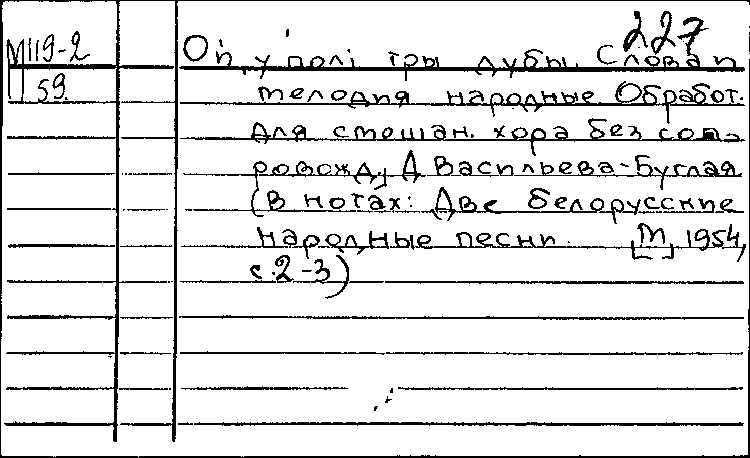 227
М119-2
П 59.
Ой, у полі тры дубы. Слова и
мелодия народные Обработ.
для смешан. хора без соп-
ровожд. Д Васильева-Буглая
(В нотах: Две белорусские
народные песни. [М], 1954,
с.2-3)